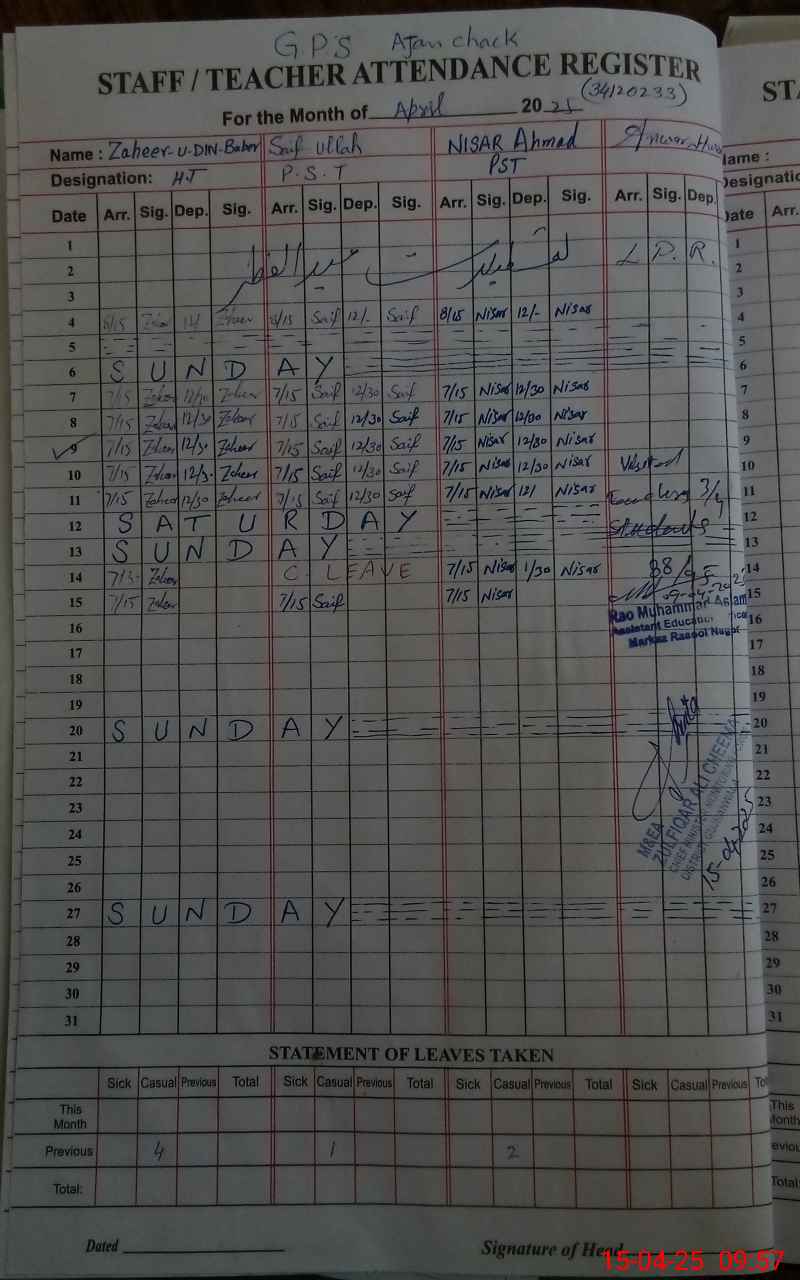 G.P.S Ajan chack
STAFF / TEACHER ATTENDANCE REGISTER
(34120233)
For the Month of April 2025
Name : Zaheer-U-DIN-Baber Saif Ullah NISAR Ahmad
Designation: H.T P.S.T PST
Date Arr. Sig. Dep. Sig. Arr. Sig. Dep. Sig. Arr. Sig. Dep. Sig. Arr. Sig. Dep.
1
2 تعطیلات عید الفطر L.P.R.
3
4 8/15 Zaheer 12/ Zaheer 8/15 Saif 12/- Saif 8/15 Nisar 12/- Nisar
5
6 S U N D A Y
7 7/15 Zaheer 12/30 Zaheer 7/15 Saif 12/30 Saif 7/15 Nisar 12/30 Nisar
8 7/15 Zaheer 12/30 Zaheer 7/15 Saif 12/30 Saif 7/15 Nisar 12/30 Nisar
9 7/15 Zaheer 12/30 Zaheer 7/15 Saif 12/30 Saif 7/15 Nisar 12/30 Nisar
10 7/15 Zaheer 12/30 Zaheer 7/15 Saif 12/30 Saif 7/15 Nisar 12/30 Nisar Visited
11 7/15 Zaheer 12/30 Zaheer 7/15 Saif 12/30 Saif 7/15 Nisar 12/ Nisar Teachers 3/4
12 S A T U R D A Y Students
13 S U N D A Y
14 7/3 Zaheer C. LEAVE 7/15 Nisar 1/30 Nisar 38/45
15 7/15 Zaheer 7/15 Saif 7/15 Nisar
09-04-2025
Rao Muhammad Aslam
Assistant Education
Markaz Rasool Nagar
16
17
18
19
20 S U N D A Y
21
22
23
24
25
26
27 S U N D A Y
28
29
30
31
M&EA
ZULFIQAR ALI CHEEMA
CHIEF MINISTER MONITORING
DISTRICT GUJRANWALA
15-04-2025
STATEMENT OF LEAVES TAKEN
Sick Casual Previous Total Sick Casual Previous Total Sick Casual Previous Total Sick Casual Previous
This Month
Previous 4 1 2
Total:
Dated Signature of Head
15-04-25 09:57